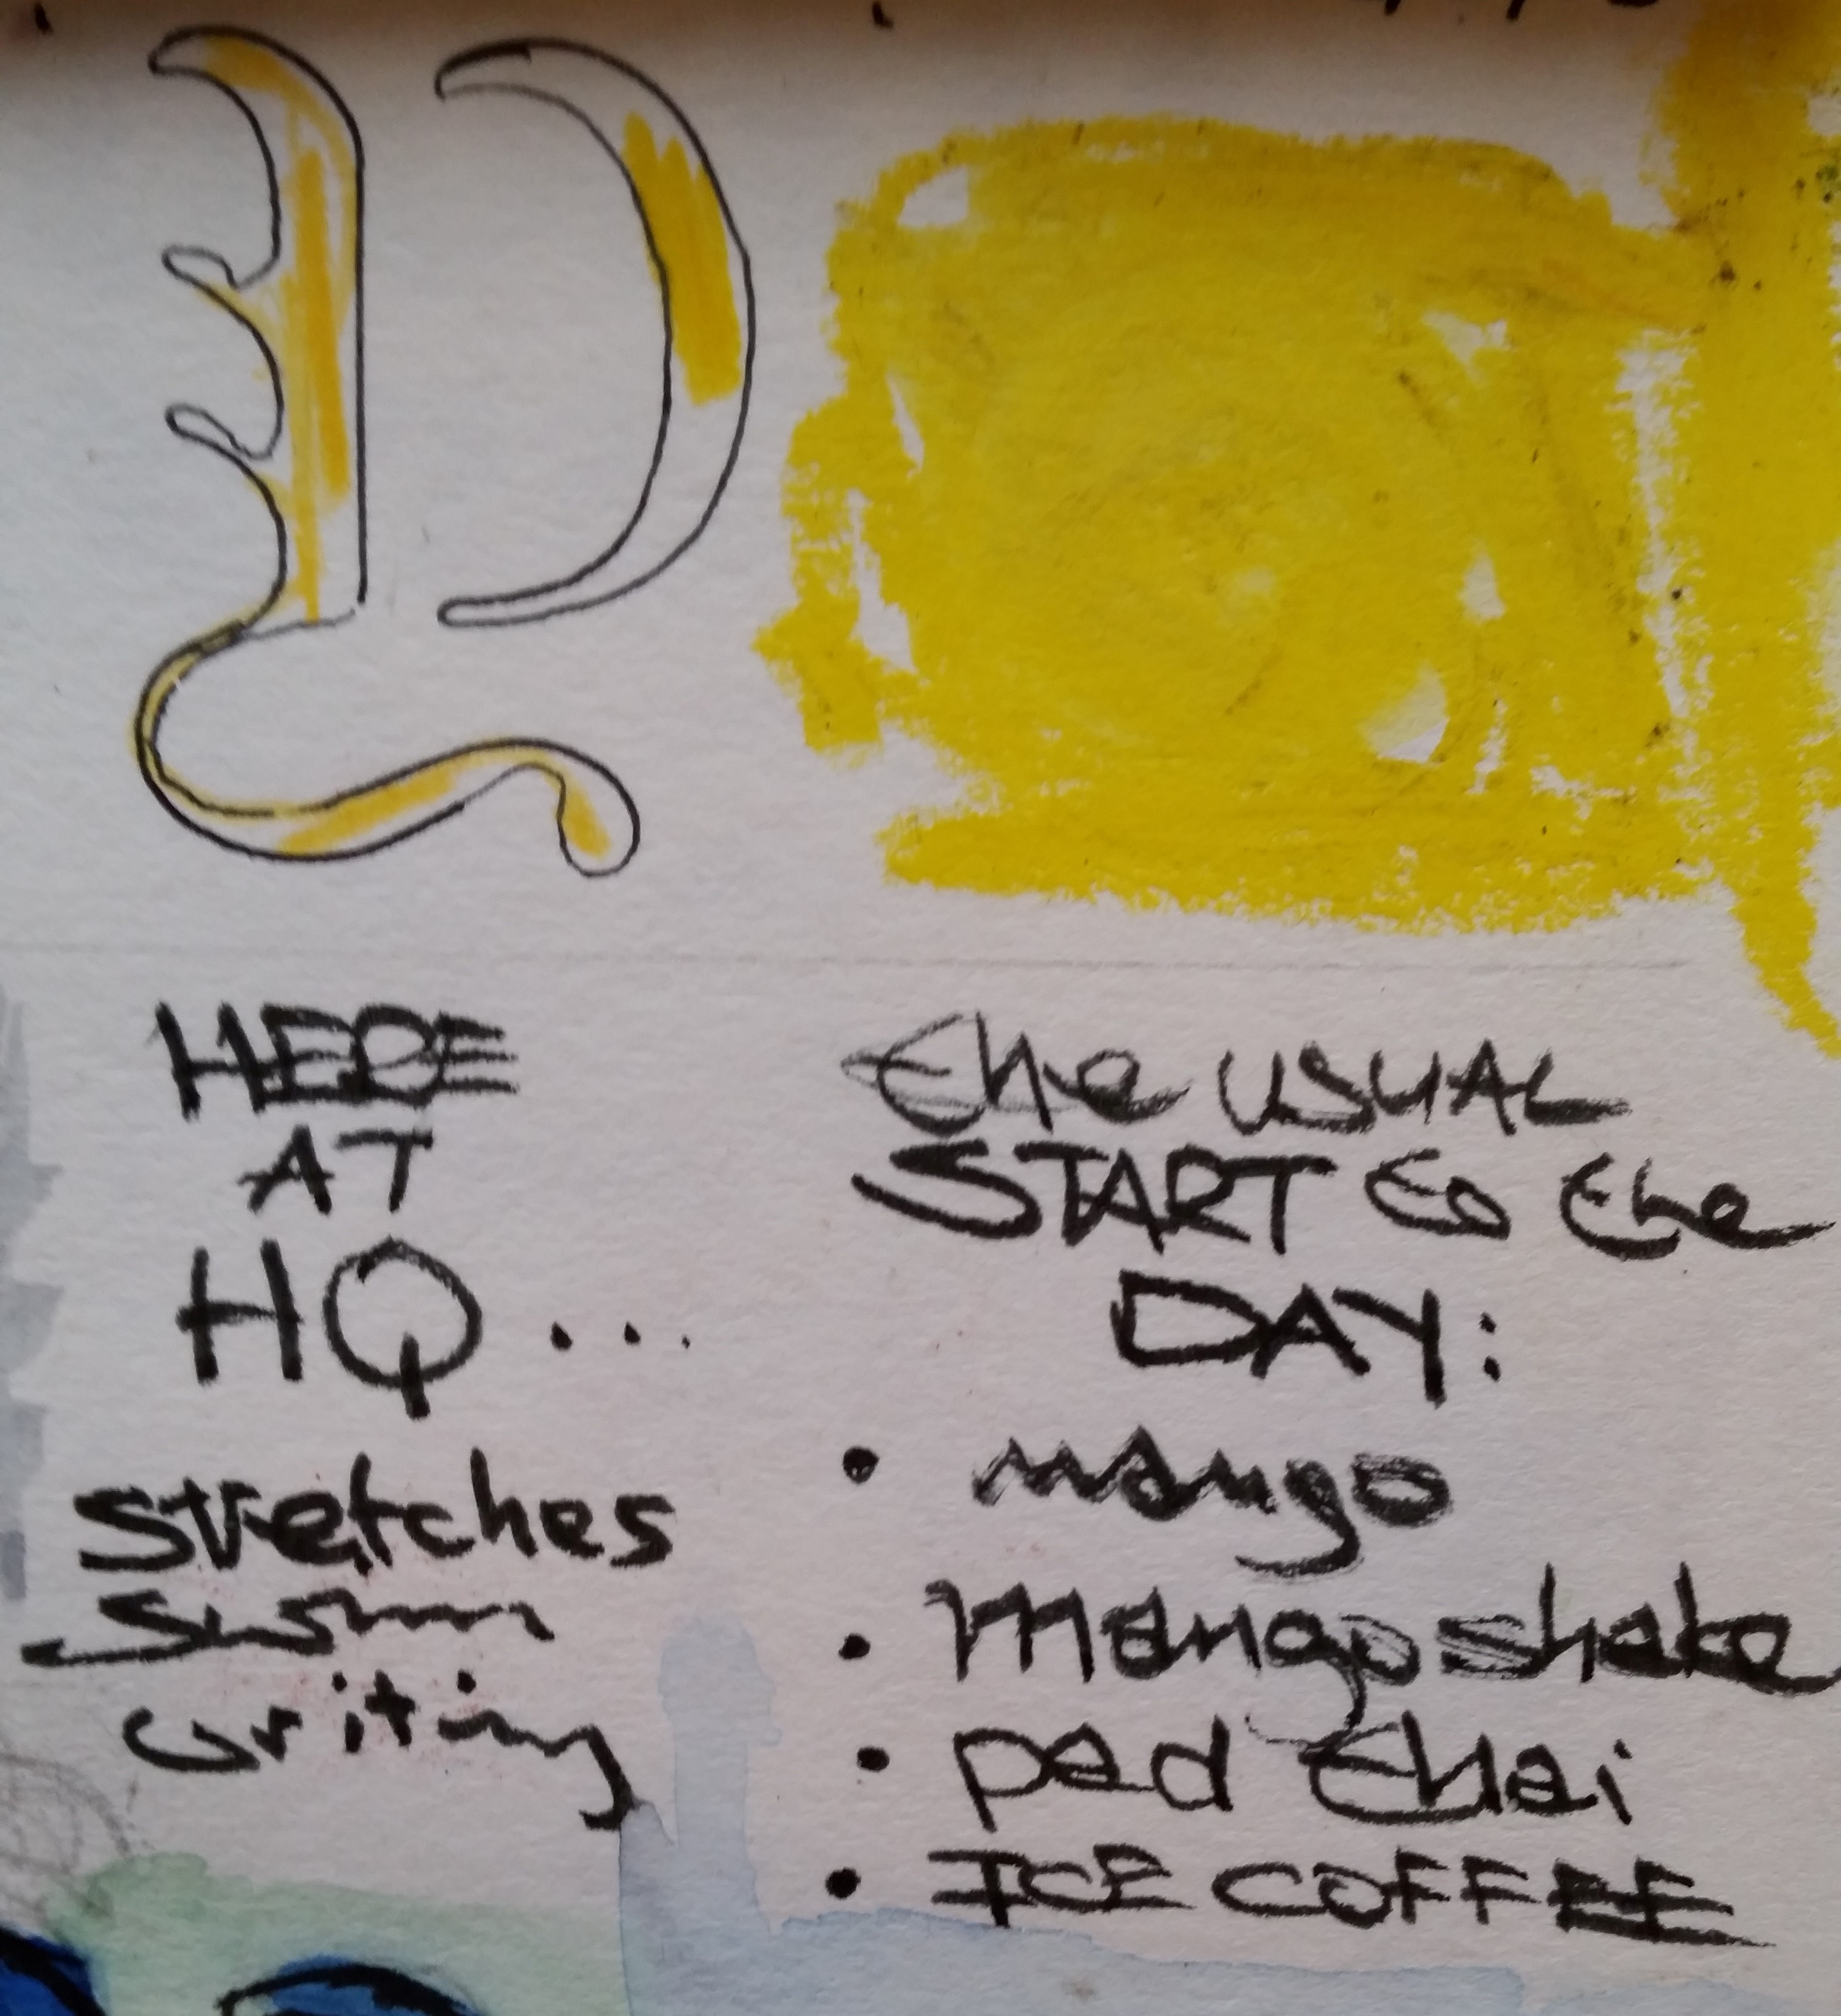 HERE
AT
HQ...
stretches
writing
the USUAL
START to the
DAY:
• mango
• mango shake
• pad thai
• ICE COFFEE